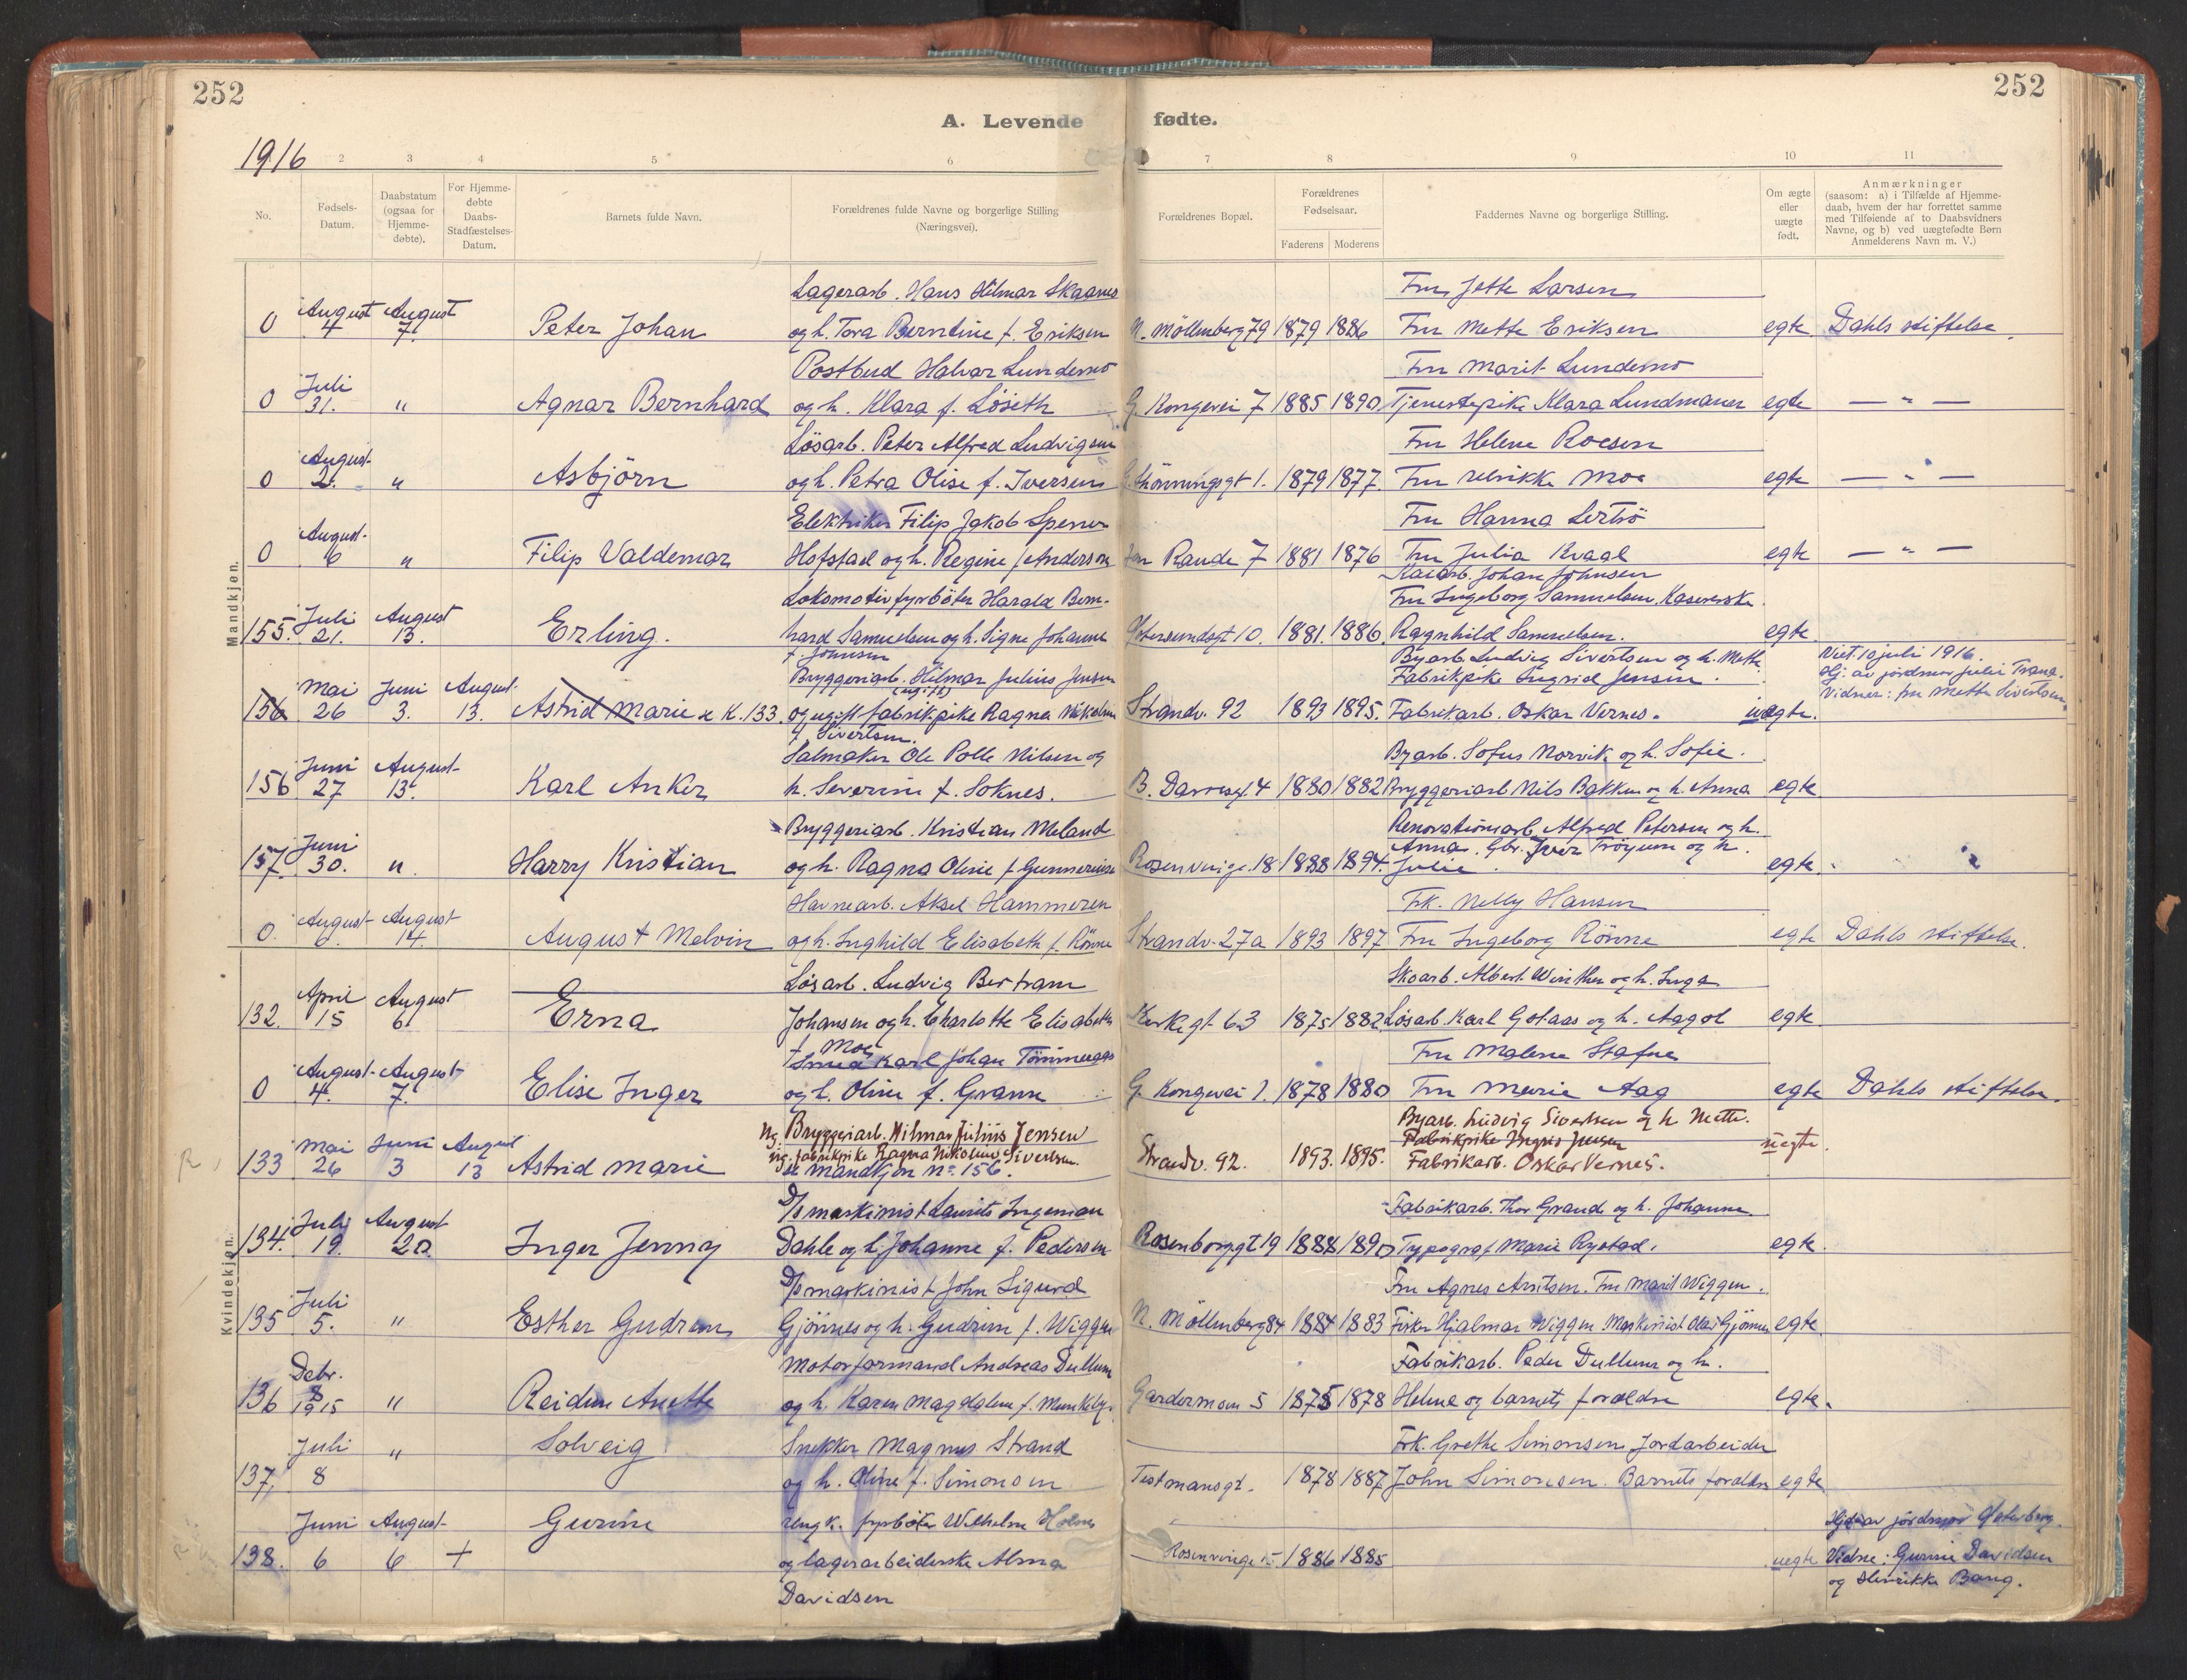 252
252
A. Levende fødte.
1916
2 3 4 5 6 7 8 9 10 11
No.
Fødsels-Datum.
Daabsdatum (ogsaa for Hjemme-døbte).
For Hjemme-døbte Daabs-Stadfæstelses-Datum.
Barnets fulde Navn.
Forældrenes fulde Navne og borgerlige Stilling (Næringsvei).
Forældrenes Bopæl.
Forældrenes Fødselsaar.
Faderens Moderens
Faddernes Navne og borgerlige Stilling.
Om ægte eller uægte født.
Anmærkninger
(saasom: a) i Tilfælde af Hjemme-
daab, hvem der har forrettet samme
med Tilføiende af to Daabsvidners
Navne, og b) ved uægtefødte Børn
Anmelderens Navn m. V.)
Mandkjøn.
Lagerarb. Hans Hilmar Skaanes Fru Jette Larsen
0 August 4 August 7. Peter Johan og h. Tora Berntine f. Eriksen N. Möllenberg 79 1879 1886 Fru Mette Eriksen egte. Dahls stiftelse.
Postbud Halvar Lundemo Fru Marit Lundemo
0 Juli 31. " Agnar Bernhard og h. Klara f. Löseth G. Kongevei 7 1885 1890 Tjenestepike Klara Lundmauer egte — " —
Lösarb. Peter Alfred Ludvigsen Fru Helene Roesen
0 August 2. " Asbjörn og h. Petra Olise f. Iversen Thönningsgt 1. 1879 1877. Fru Ulrikke Moe egte — " —
Elektriker Filip Jakob Sperre Fru Hanna
0 August 6 " Filip Valdemar Hofstad og h. Regine f Andersen Jon Raude 7 1881 1876 Fru Julia Kvaal egte — " —
Lokomotivfyrböter Harald Bern- Kaiarb. Johan Johnsen
Fru Ingeborg Samuelsen, Kasererske
155. Juli 21. August 13. Erling. hard Samuelsen og h. Signe Johanne f. Johnsen Östersundsgt 10. 1881. 1886. Ragnhild Samuelsen. egte
Bryggeriarb. Hilmar Julius Jensen Byarb. Ludvig Sivertsen og h. Mette
(ugift) Fabrikpike Ingrid Jensen. Viet. 10 juli 1916.
Hj. av jordmor Julie Trana.
Vidner: fru Mette Sivertsen.
156 Mai 26 Juni 3. August 13. Astrid Marie se K. 133. og ugift fabrikpike Ragna Nikoline f Sivertsen. Strandv. 92 1893 1895. Fabrikarb. Oskar Vernes. uegte.
Salmaker Ole Polle Nilsen og Byarb. Sofus Norvik og h. Sofie.
156 Juni 27 August 13. Karl Anker h. Severine f. Soknes. B. Dawesgt. 4 1880 1882 Bryggeriarb Nils Bakken og h. Anna egte
Bryggeriarb. Kristian Meland Renovationsarb. Alfred Petersen og h.
Anna. Gbr. Iver Tröyum og h.
157. Juni 30. " Harry Kristian og h. Ragna Oline f Gunneriusen Rosenvinge. 18 1888 1894. Julie. egte.
Havnearb. Aksel Hammeren Frk. Nelly Hansen
0. August 6. August 14. August Melvin og h. Inghild Elisabeth f. Rönne Strandv. 27a 1893 1897 Fru Ingeborg Rönne egte Dahls stiftelse.
Kvindekjøn.
Lösarb. Ludvig Bertram Skoarb. Albert Winther og h. Inga
132. April 15 August 6. Erna Johansen og h. Charlotte Elisabeth f Moe Kirkegt 63 1875 1882 Lösarb. Karl Gotaas og h. Aagot egte
Smed Karl Johan Tömmeraas Fru Malene Stafne
0 August 4. August 7. Elise Inger og h. Oline f. Gramn G. Kongevei 1. 1878 1880 Fru Marie Aag egte Dahls stiftelse.
Ug. Bryggeriarb. Hilmar Julius Jensen Byarb. Ludvig Sivertsen og h Mette.
ug. fabrikpike Ragna Nikoline Sivertsen. Fabrikpike Ingrid Jensen
R. 133 Mai 26 Juni 3 August 13 Astrid Marie se Mandkjön nº 156. Strandv. 92. 1893. 1895. Fabrikarb. Oskar Vernes. uegte.
D/s maskinist Laurits Ingeman Fabrikarb. Thor Grande og h. Johanne
134. Juli 19. August 20. Inger Jenny Dahle og h. Johanne f. Pedersen Rosenborggt 19 1888 1890 Typograf Marie Rystad. egte.
D/s maskinist John Sigurd Fru Agnes Arntsen. Fru Marit Wiggen.
135 Juli 5. " Esther Gudrun Gjönnes og h. Gudrun f. Wiggen N. Möllenberg 84 1884 1883 Fisker Hjalmar Wiggen Maskinist Olav Gjönnes egte.
Motorformand Andreas Dullum Fabrikarb. Peder Dullum og h.
136 Debr. 8 1915 " Reidun Anette og h. Karen Magdalene f. Munkeby. Gardermoen 5 1875 1878 Helene og barnets foreldre egte.
Juli " Solveig Snekker Magnus Strand Frk. Grethe Simonsen, Jordarbeider
137, 8 og h. Oline f. Simonsen Testmansgt. 1878 1887 John Simonsen. Barnets foreldre egte
Juni August Gunni ungk. fyrböter Wilhelm Holnes Hjd. av jordmor Österberg.
138. 6 6 + og lagerarbeiderske Alma Rosenvinge 15 1886 1885 uegte Vidne: Gunni Davidsen
Davidsen og Henrikke Bang.